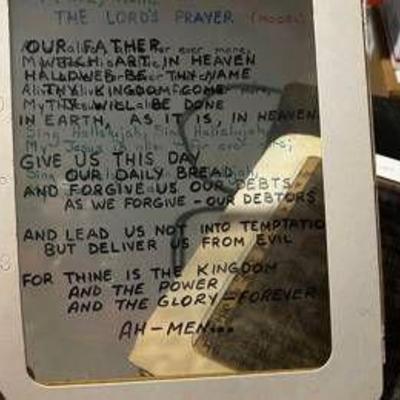 THE LORD'S PRAYER (MODEL)
OUR FATHER
for ever more,
WHICH ART IN HEAVEN
HALLOWED BE THY NAME
THY KINGDOM COME
THY WILL BE DONE
IN EARTH, AS IT IS, IN HEAVEN
Sing Hallelujah, Sing Hallelujah,
My Jesus is alive for ever more,
GIVE US THIS DAY
OUR DAILY BREAD
AND FORGIVE US OUR DEBTS
AS WE FORGIVE - OUR DEBTORS
AND LEAD US NOT INTO TEMPTATIO
BUT DELIVER US FROM EVIL
FOR THINE IS THE KINGDOM
AND THE POWER
AND THE GLORY - FOREVER
AH-MEN...